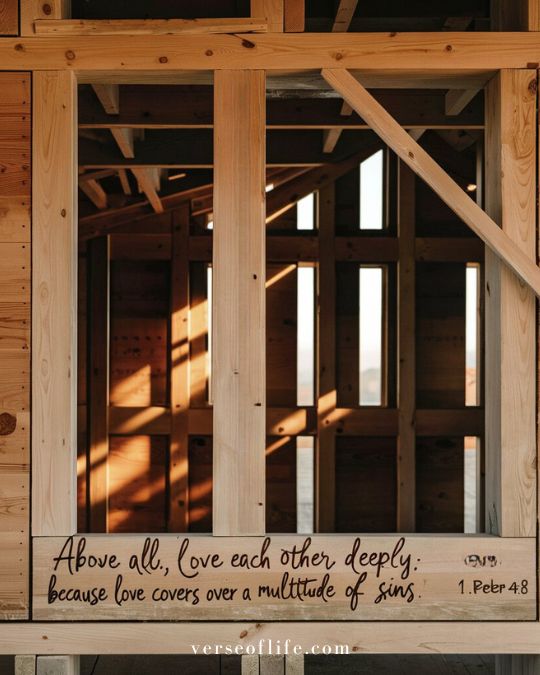 Above all., Love each other deeply:
because love covers over a multitude of sins.
1. Peter 4:8
verseoflife.com